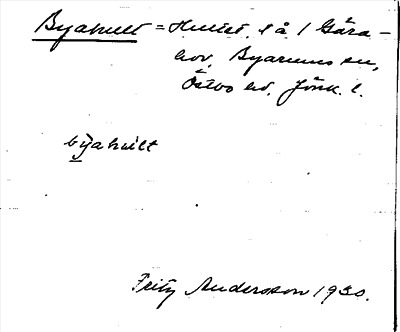 Byahult = Hultet, l å / Gära-
hov, Byarums sn,
Östbo hd. Jönk. l.
byahult
Fritz Andersson 1930.